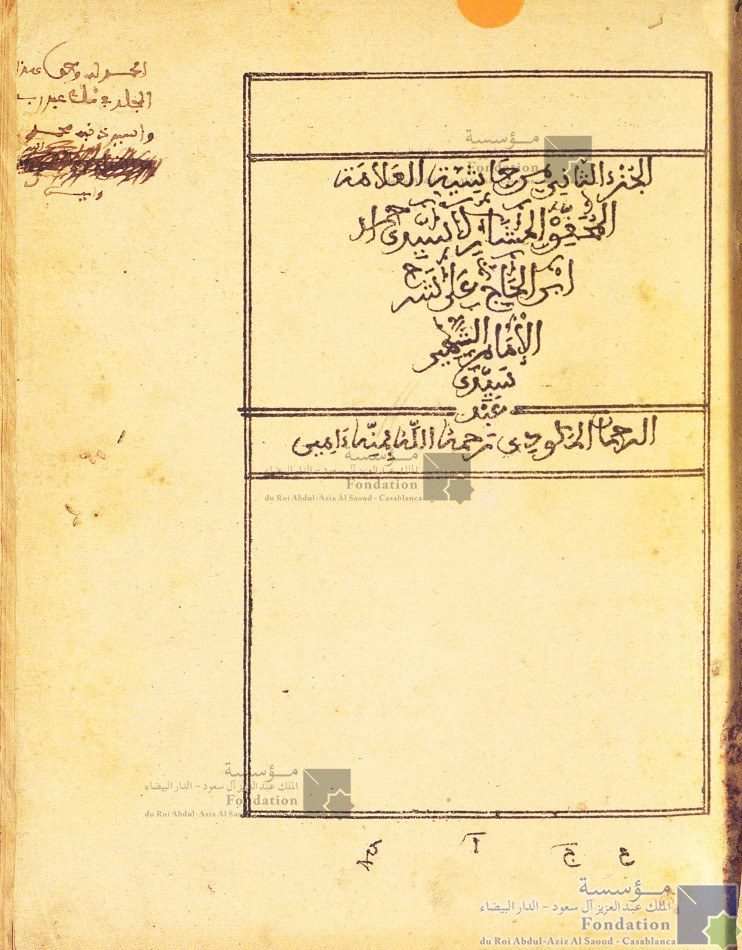 الجزء الثاني من حاشية العلامة
المحقق المشارك السيد أحمد
ابن الحاج على شرح
الإمام الشهير
سيدي
عبد
الرحمان المكودي رحمه الله بمنه ءامين
الحمد لله وحده
المجلد في ملك عبد ربه
مؤسسة
الملك عبد العزيز آل سعود - الدار البيضاء
Fondation
du Roi Abdul-Aziz Al Saoud - Casablanca
مؤسسة
الملك عبد العزيز آل سعود - الدار البيضاء
Fondation
du Roi Abdul-Aziz Al Saoud - Casablanca
مؤسسة
الملك عبد العزيز آل سعود - الدار البيضاء
Fondation
du Roi Abdul-Aziz Al Saoud - Casablanca